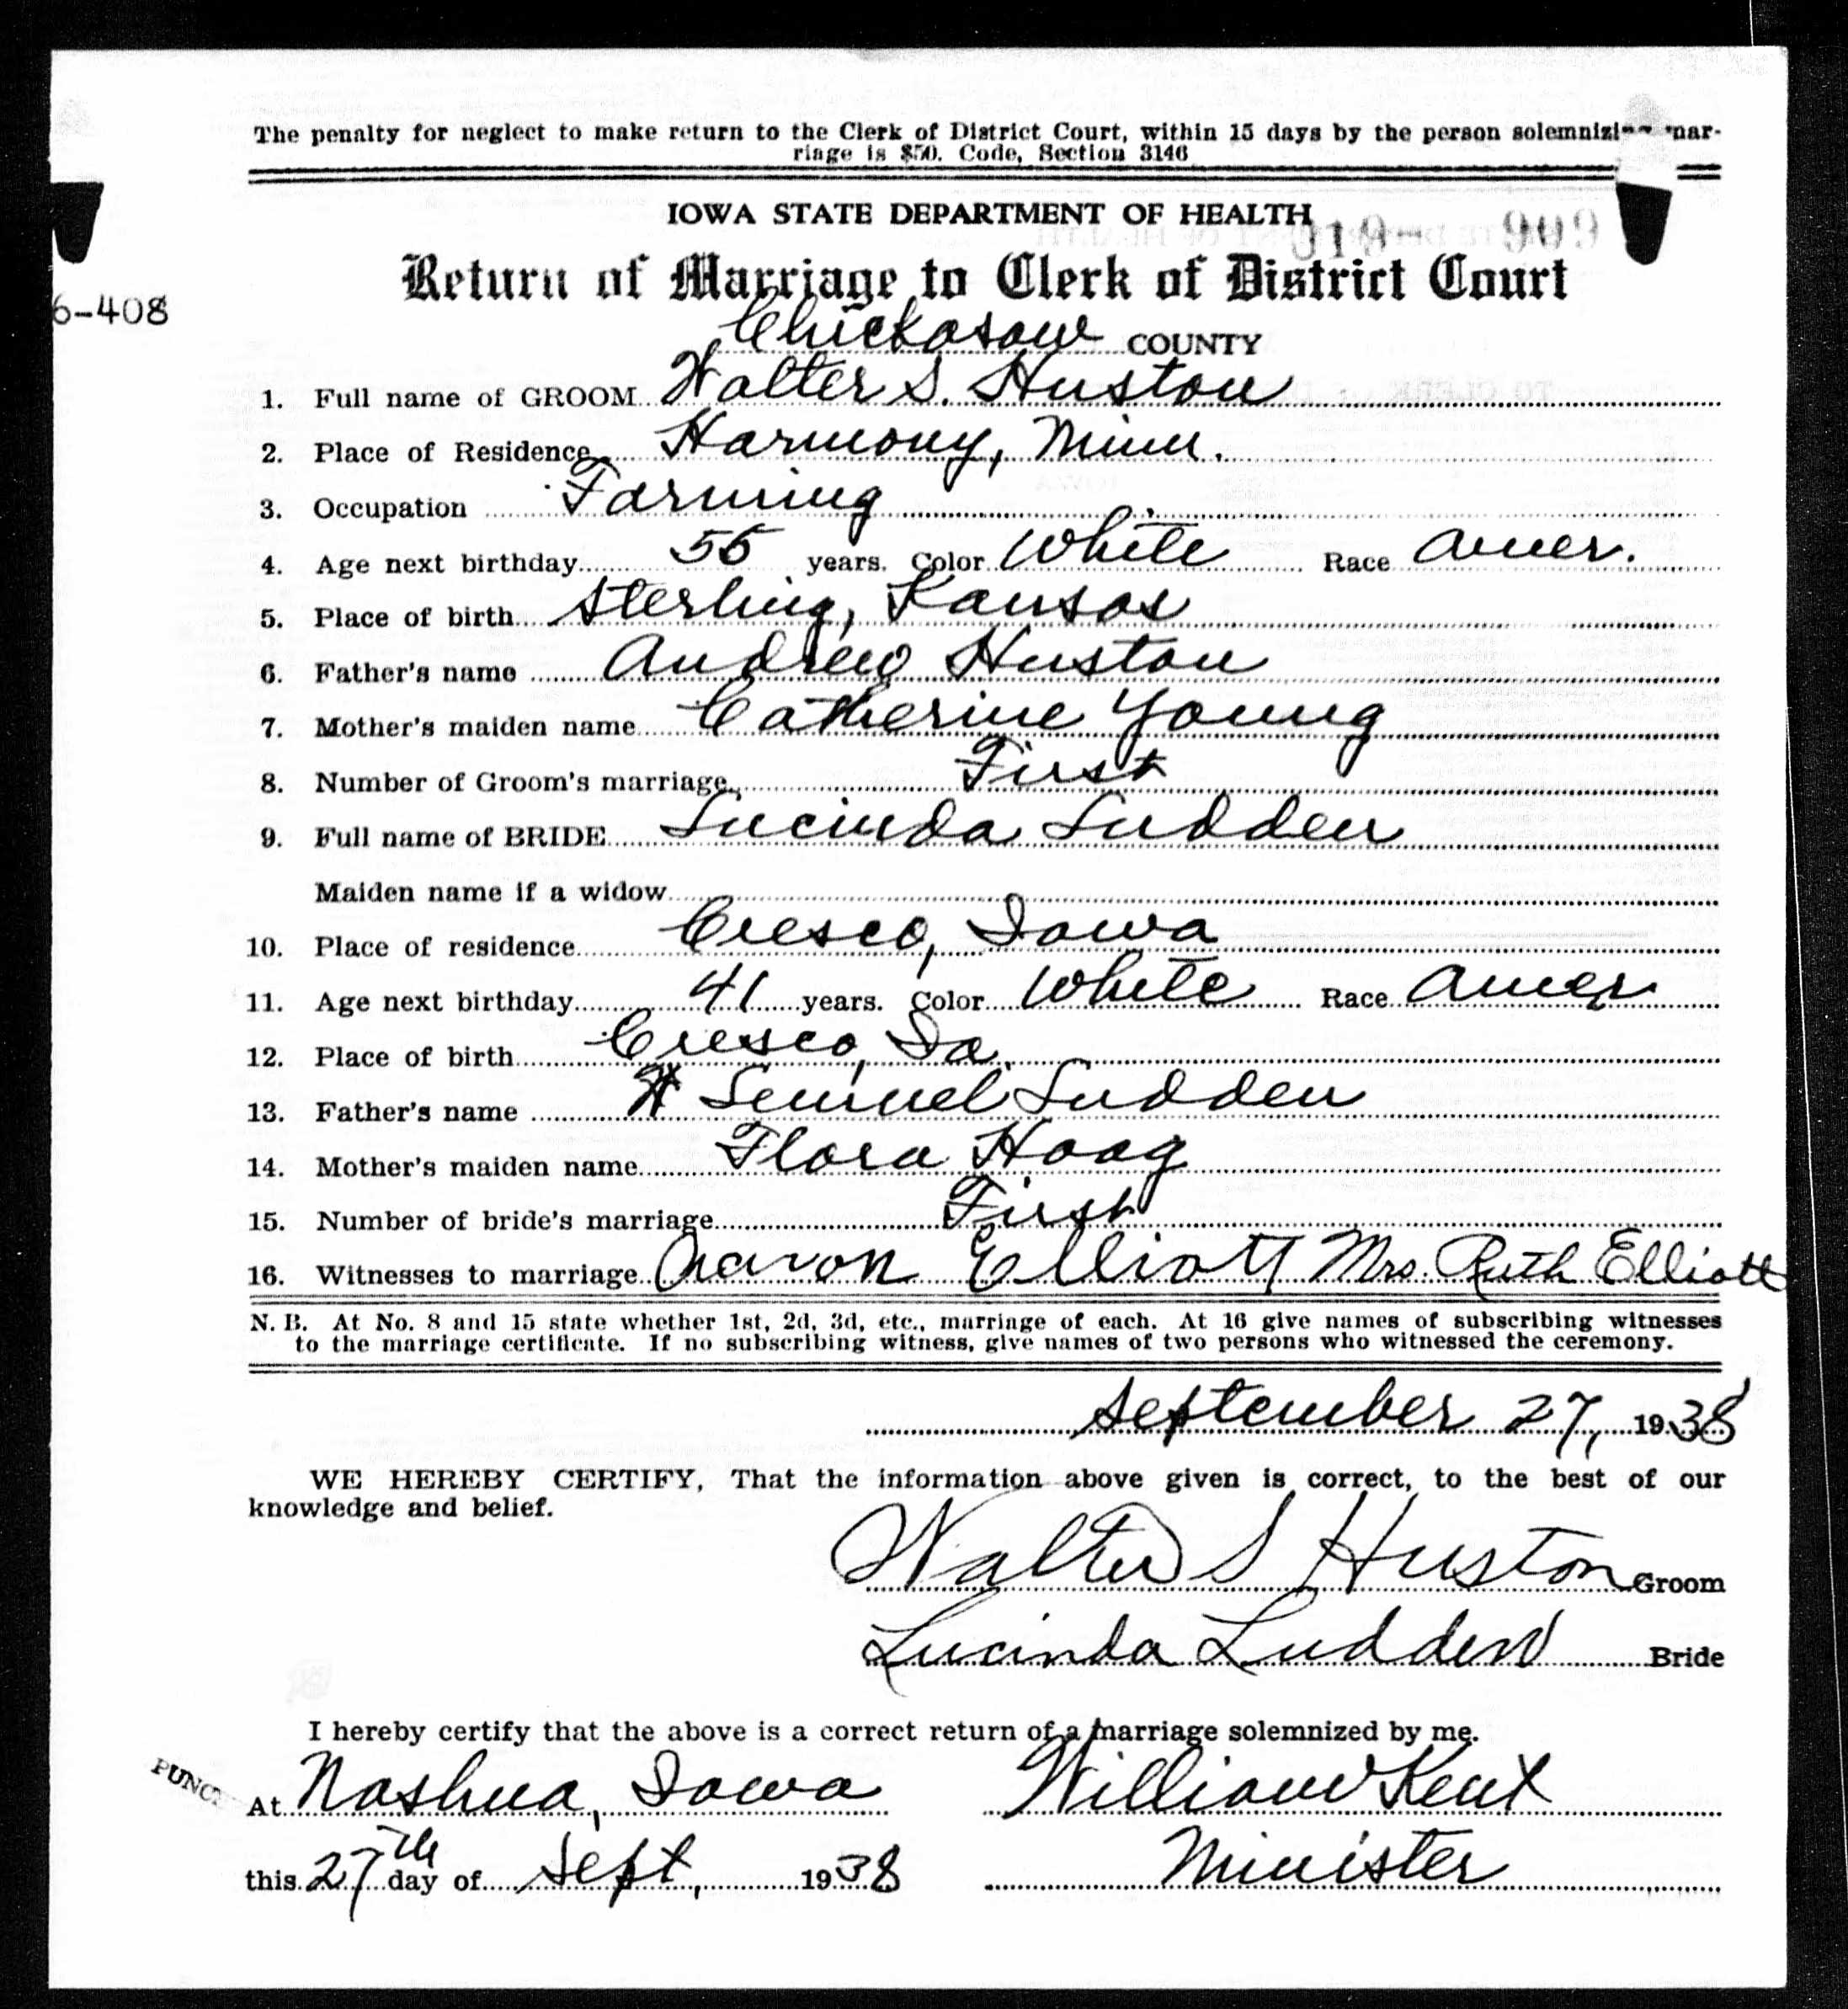 The penalty for neglect to make return to the Clerk of District Court, within 15 days by the person solemnizing mar-
riage is $50. Code, Section 3146
IOWA STATE DEPARTMENT OF HEALTH
Return of Marriage to Clerk of District Court
6-408
Chickasaw COUNTY
1. Full name of GROOM Walter S. Huston
2. Place of Residence Harmony, Minn.
3. Occupation Farming
4. Age next birthday 55 years. Color White Race Amer.
5. Place of birth Sterling, Kansas
6. Father's name Andrew Huston
7. Mother's maiden name Catherine Young
8. Number of Groom's marriage First
9. Full name of BRIDE Lucinda Ludden
Maiden name if a widow
10. Place of residence Cresco, Iowa
11. Age next birthday 41 years. Color White Race Amer
12. Place of birth Cresco, Ia.
13. Father's name Lemuel Ludden
14. Mother's maiden name Flora Hoag
15. Number of bride's marriage First
16. Witnesses to marriage Aaron Elliott Mrs. Ruth Elliott
N. B. At No. 8 and 15 state whether 1st, 2d, 3d, etc., marriage of each. At 16 give names of subscribing witnesses
to the marriage certificate. If no subscribing witness, give names of two persons who witnessed the ceremony.
September 27, 1938
WE HEREBY CERTIFY, That the information above given is correct, to the best of our
knowledge and belief.
Walter S Huston Groom
Lucinda Ludden Bride
I hereby certify that the above is a correct return of a marriage solemnized by me.
At Nashua, Iowa William Kent
this 27th day of Sept, 1938 Minister